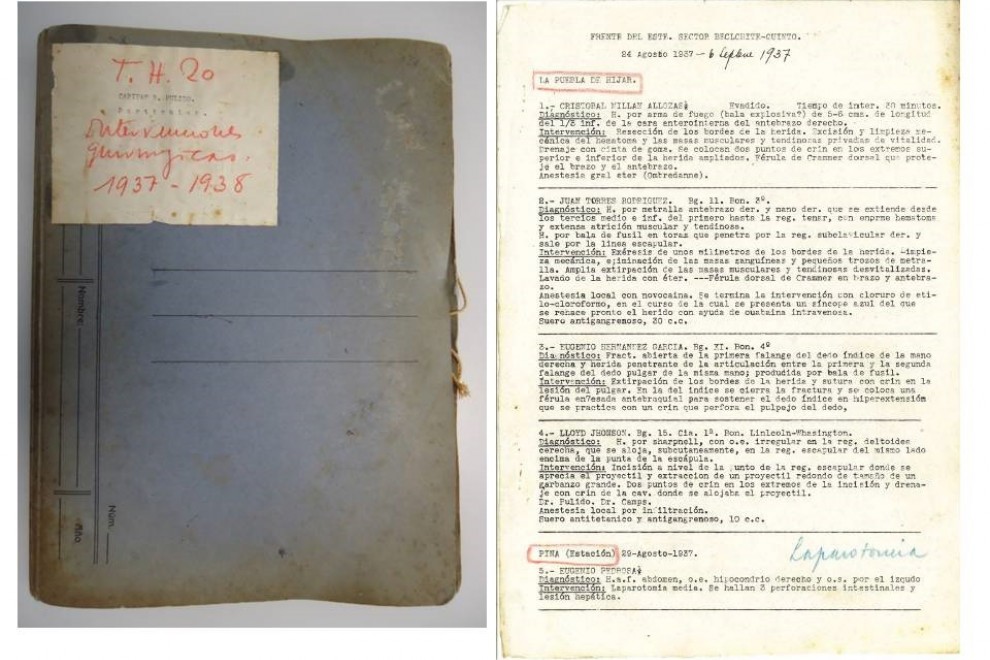 T. H. 20
CAPITAN M. PULIDO.
Particular.
Intervenciones
quirurgicas.
1937 - 1938
Nombre:
Núm.
Año
FRENTE DEL ESTE. SECTOR BELCHITE-QUINTO.
24 Agosto 1937 - 6 Sepbre 1937
LA PUEBLA DE HIJAR.
1.- CRISTOBAL MILLAN ALLOZAS Evadido. Tiempo de inter. 20 minutos.
Diagnóstico: H. por arma de fuego (bala explosiva? de 5-6 cms. de longitud
del 1/3 inf. de la cara enterointerna del antebrazo derecho.
Intervención: Resección de los bordes de la herida. Excisión y limpieza me-
cánica del hematoma y las masas musculares y tendinosas privadas de vitalidad.
Drenaje con cinta de goma. Se colocan dos puntos de crin en los extremos su-
perior e inferior de la herida ampliados. Férula de Crammer dorsal que prote-
je el brazo y el antebrazo.
Anestesia gral eter (Ombredanne).
2.- JUAN TORRES RODRIGUEZ. Bg. 11. Bon. 3º.
Diagnóstico: H. por metralla antebrazo der. y mano der. que se extiende desde
los tercios medio e inf. del primero hasta la reg. tenar, con enorme hematoma
y extensa atrición muscular y tendinosa.
H. por bala de fusil en torax que penetra por la reg. subclavicular der. y
sale por la linea escapular.
Intervención: Exéresis de unos milimetros de los bordes de la herida. Limpie-
za mecánica, eliminación de las masas sanguíneas y pequeños trozos de metra-
lla. Amplia extirpación de las masas musculares y tendinosas desvitalizadas.
Lavado de la herida con éter. ---Férula dorsal de Crammer en brazo y antebra-
zo.
Anestesia local con novocaina. Se termina la intervención con cloruro de eti-
lo-cloroformo, en el curso de la cual se presenta un síncope azul del que
se rehace pronto el herido con ayuda de ouabaina intravenosa.
Suero antigangrenoso, 30 c.c.
3.- EUGENIO HERNANDEZ GARCIA. Bg. XI. Bon. 4º
Diagnóstico: Fract. abierta de la primera falange del dedo índice de la mano
derecha y herida penetrante de la articulación entre la primera y la segunda
falange del dedo pulgar de la misma mano; producida por bala de fusil.
Intervención: Extirpación de los bordes de la herida y sutura con crin en la
lesión del pulgar. En la del indice se cierra la fractura y se coloca una
férula en7esada antebraquial para sostener el dedo índice en hiperextensióm
que se practica con un crin que perfora el pulpejo del dedo,
4.- LLOYD JHONSON. Bg. 15. Cia. 1ª. Bon. Linlcoln-Whasington.
Diagnóstico: H. por sharpnell, con o.e. irregular en la reg. deltoides
cerecha, que se aloja, subcutaneamente, en la reg. escapular del mismo lado
encima de la punta de la escápula.
Intervención Incisión a nivel de la punto de la reg. escapular donde se
aprecia el proyectil y extraccion de un proyectil redondo de tamaño de un
garbanzo grande. Dos puntos de crin en los extremos de la incisión y drena-
je con crin de la cav. donde se alojaba el proyectil.
Dr. Pulido. Dr. Camps.
Anestesia local por infiltración.
Suero antitetanico y antigangrenoso, 10 c.c.
PINA (Estación) 29-Agosto-1937. Laparotomia
5.- EUGENIO PEDROSA
Diagnóstico: H.a.f. abdomen, o.e. hipocondrio derecho y o.s. por el izqudo
Intervención: Laparotomia media. Se hallan 3 perforaciones intestinales y
lesión hepática.